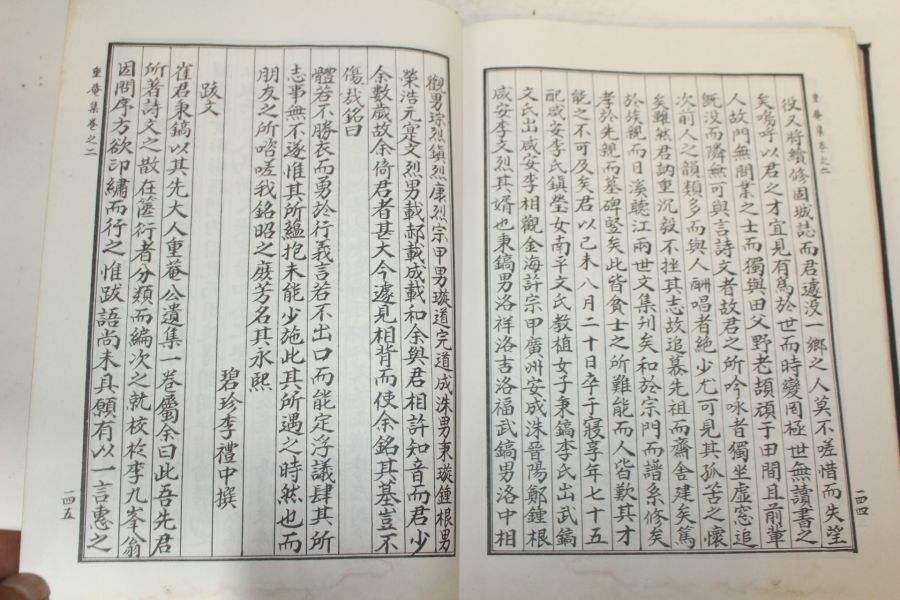 重菴集卷之二
役又將續修固城誌而君遽没一鄉之人莫不嗟惜而失望
矣嗚呼以君之才宜見有爲於世而時變罔極世無讀書之
人故門無問業之士而獨與田父野老頡頏于田間且前輩
旣没而隣無可與言詩文者故君之所吟咏者獨坐虛窓追
次前人之韻類多而與人酬唱者絶少尤可見其孤苦之懷
矣雖然君訥重沉毅不挫其志故追慕先祖而齋舍建矣篤
於族親而日溪聽江兩世文集刊矣和於宗門而譜系修矣
孝於先親而墓碑竪矣此皆貧士之所難能而人皆歎其才
能之不可及矣君以己未八月二十日卒于寢享年七十五
配咸安李氏鎭瑩女南平文氏敎植女子秉鎬李氏出武鎬
文氏出咸安李相觀金海許宗甲廣州安成洙晋陽鄭鍾根
咸安李文烈其婿也秉鎬男洛祥洛吉洛福武鎬男洛中相
一四四
觀男琮烈鎭烈康烈宗甲男璇道完道成洙男秉璇鍾根男
榮浩元寔文烈男載郝載成載和余與君相許知音而君少
余數歲故余倚君者甚大今遽見相背而使余銘其墓豈不
傷哉銘曰
體若不勝衣而勇於行義言若不出口而能定浮議肆其所
志事無不遂惟其所蘊抱未能少施此其所遇之時然也而
朋友之所嗞嗟我銘昭之庶芳名其永熙
碧珍李禮中撰
跋文
崔君秉鎬以其先大人重菴公遺集一卷屬余曰此吾先君
所著詩文之散在篋衍者分類而編次之就校於李九峯翁
因問序方欲印繡而行之惟跋語尚未具願有以一言惠之
重菴集卷之二
一四五